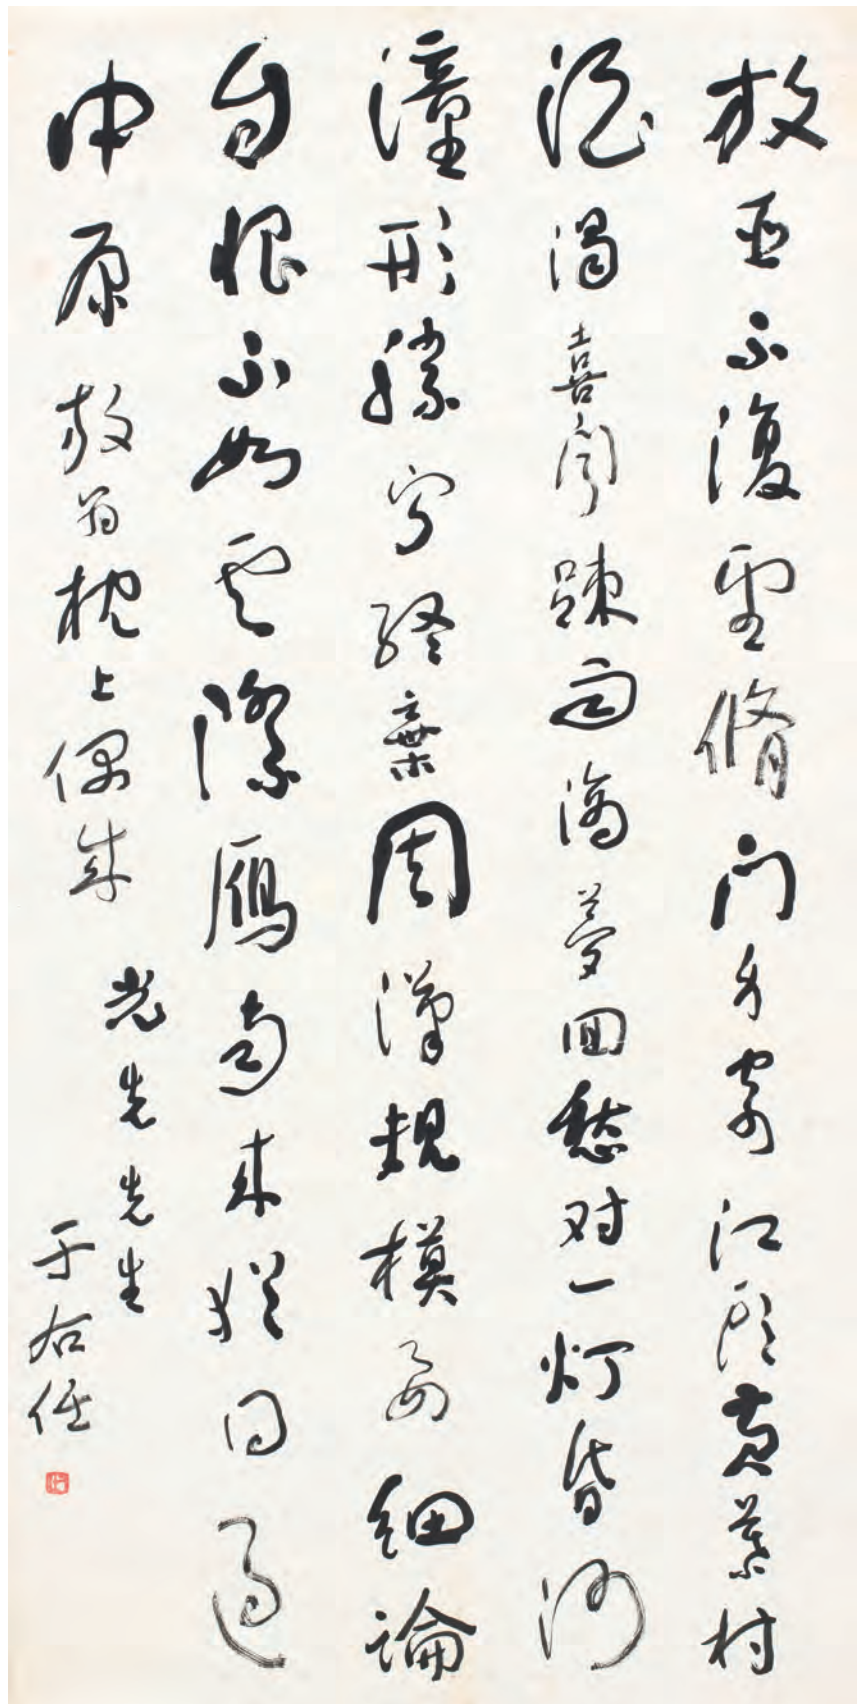 放臣不復望脩門身寄江頭黃葉村
酒渴喜聞踈雨滴夢回愁对一灯昏河
潼形勝寧終棄周漢規模要細論
自恨不如雲際鴈南來猶得過
中原 放翁枕上偶成
光先先生
于右任